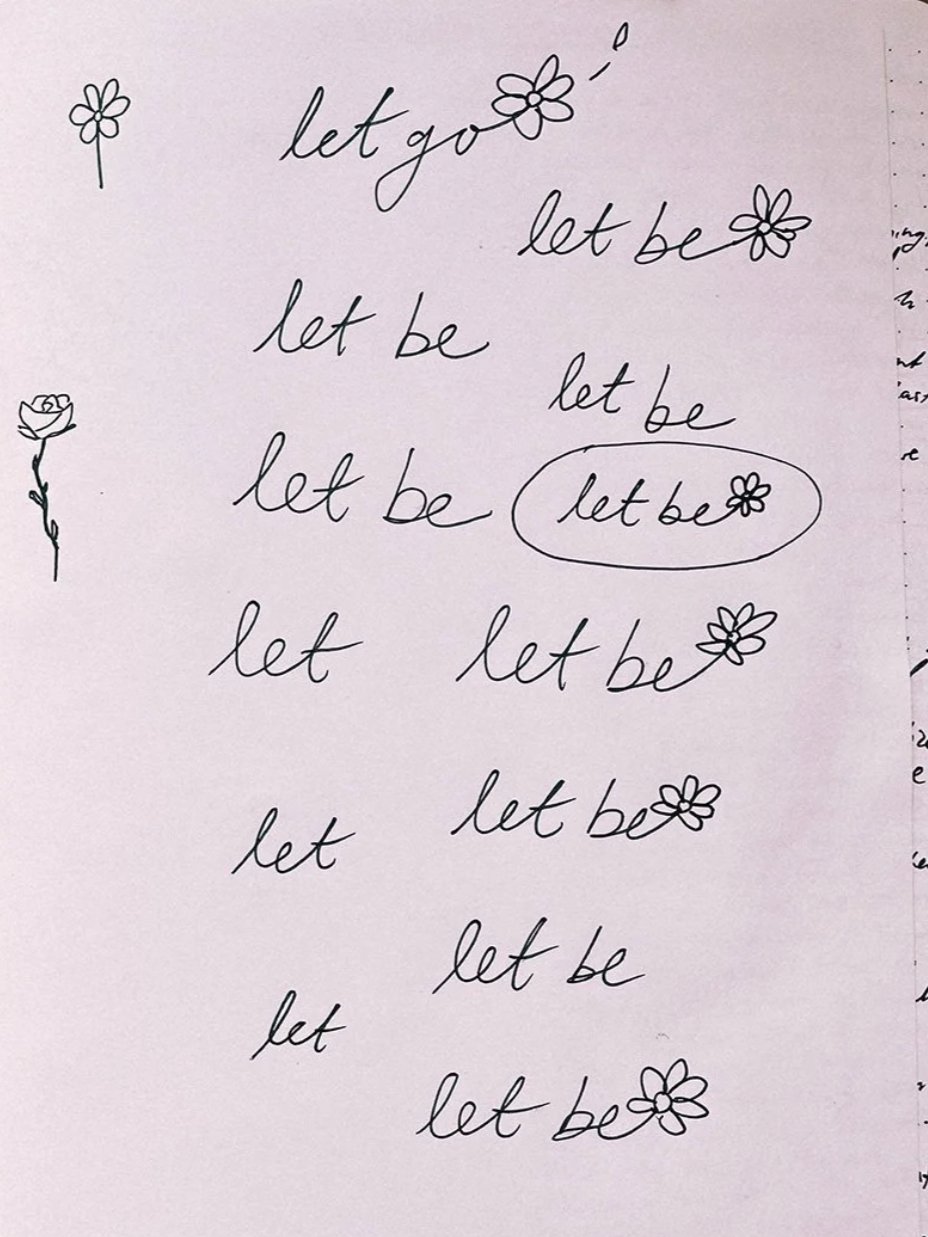 let go
let be
let be
let be
let be
let be
let
let be
let be
let
let be
let
let be